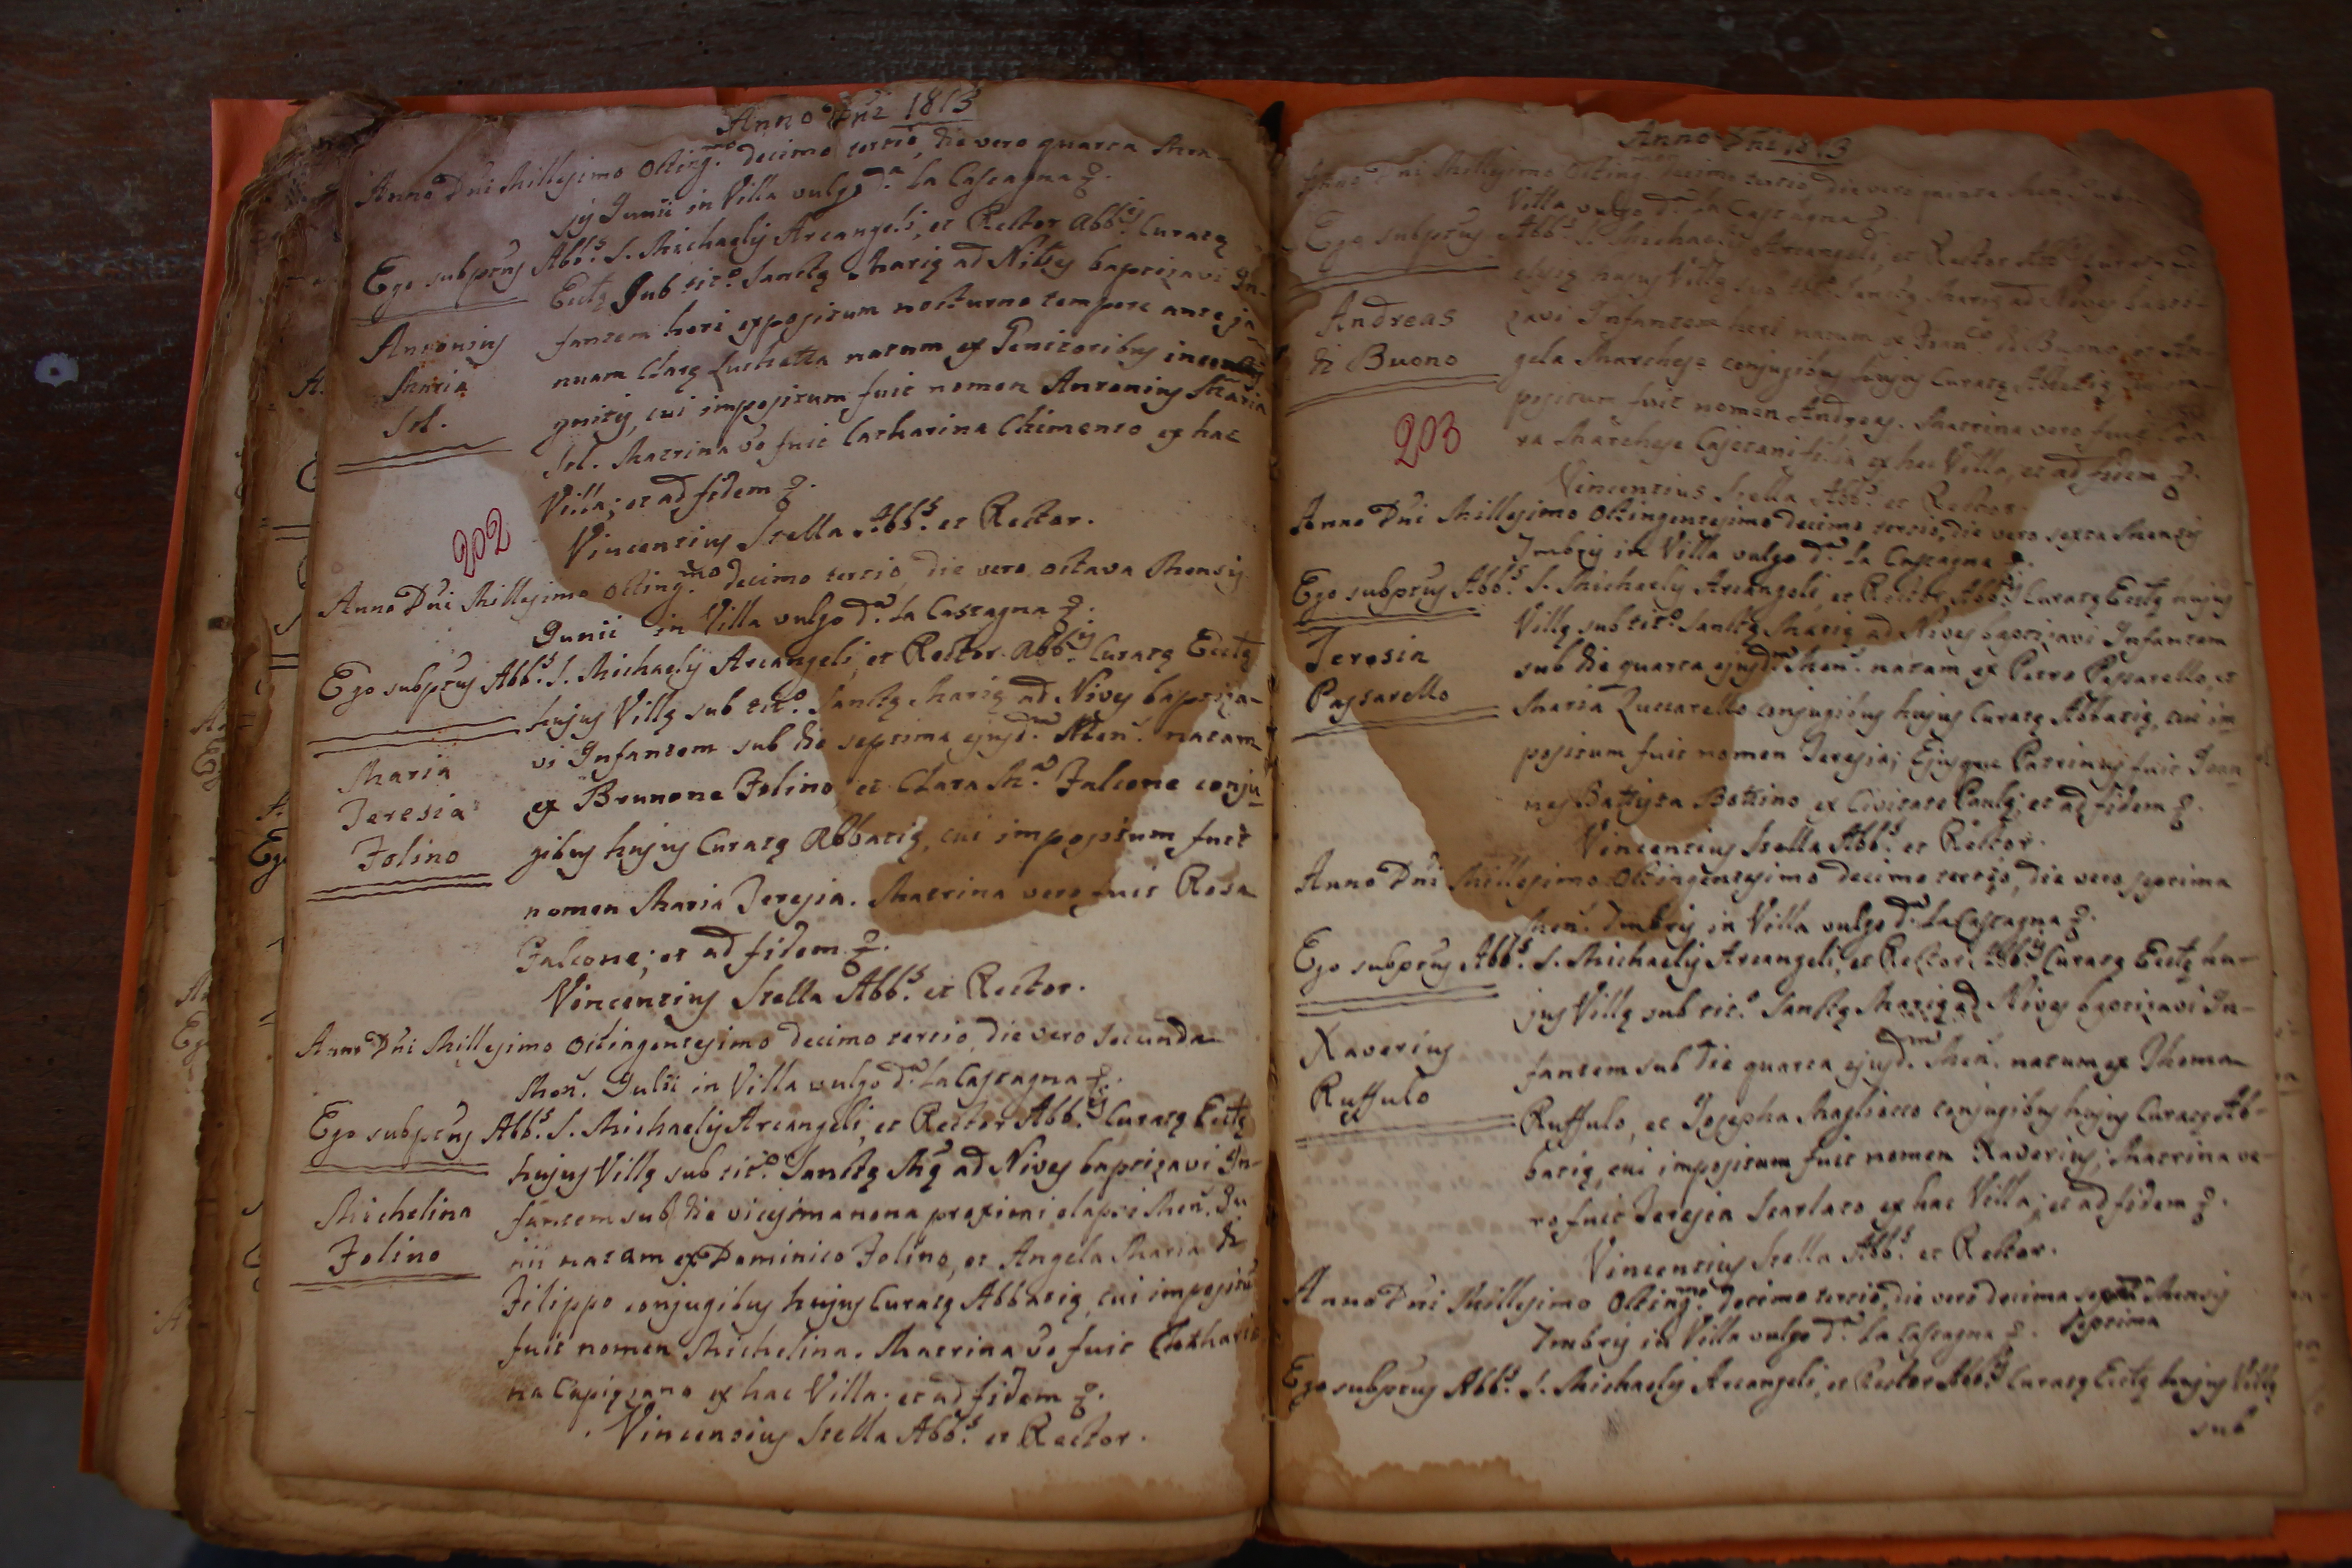 Anno Dñi 1813
Anno Dñi Millesimo Octing.mo decimo tertio, die vero quarta Men-
sis Junii in Villa vulgo d.a La Castagna &.
Ego subptus Abb.s S. Michaelis Arcangeli, et Rector Abb.is Curatę
Eccłę sub tit.o Sanctę Marię ad Nives baptizavi In-
fantem heri expositum nocturno tempore ante ja
nuam Clarę Luchetta natum ex Genitoribus inco
gnitis, cui impositum fuit nomen Antonius Maria
Sel. Matrina vo fuit Catharina Chimento ex hac
Villa; et ad fidem &.
Vincentius Stella Abb.s et Rector.
Antonius
Maria
Sel.
202
Anno Dñi Millesimo Octing.mo decimo tertio, die vero octava Mensis
Junii in Villa vulgo d.a La Castagna &.
Ego subptus Abb.s S. Michaelis Arcangeli, et Rector Abb.is Curatę Eccłę
hujus Villę sub tit.o Sanctę Marię ad Nives baptiza-
vi Infantem sub die septima ejusd.m Men. natam
ex Brunone Folino et Clara M.a Falcone conju
gibus hujus Curatę Abbatię, cui impositum fuit
nomen Maria Teresia. Matrina vero fuit Rosa
Falcone; et ad fidem &.
Vincentius Stella Abb.s et Rector.
Maria
Teresia
Folino
Anno Dñi Millesimo Octingentesimo decimo tertio, die vero secunda
Men. Julii in Villa vulgo d.a La Castagna &.
Ego subptus Abb.s S. Michaelis Arcangeli, et Rector Abb.is Curatę Eccłę
hujus Villę sub tit.o Sanctę M.ę ad Nives baptizavi In-
fantem sub die vicesima nona proximi elapsi Men. Ju
nii natam ex Dominico Folino, et Angela Maria di
Filippo conjugibus hujus Curatę Abbatię, cui impositũ
fuit nomen Michelina. Matrina vo fuit Cathari
na Capigiano ex hac Villa; et ad fidem &.
Vincentius Stella Abb.s et Rector.
Michelina
Folino
Anno Dñi 1813
Anno Dñi Millesimo Octing.mo decimo tertio, die vero
Villa vulgo d.a La Castagna &.
Ego subptus Abb.s S. Michaelis Arcangeli, et Rector Abb.is Curatę
hujus Villę sub tit.o Sanctę Marię ad Nives bapti-
zavi Infantem heri natum ex Fran.co di Buono, et An-
gela Marchese conjugibus hujus Curatę Abbatię, cui im-
positum fuit nomen Andreas. Matrina vero fuit
ra Marchese Cajetani filia ex hac Villa, et ad fidem &.
Vincentius Stella Abb.s et Rector.
Andreas
di Buono
203
Anno Dñi Millesimo Octingentesimo decimo tertio, die vero sexta Mensis
Imbris in Villa vulgo d.a La Castagna &.
Ego subptus Abb.s S. Michaelis Arcangeli, et Rector Abb.is Curatę Eccłę hujus
Villę sub tit.o Sanctę Marię ad Nives baptizavi Infantem
sub die quarta ejusd.m Men. natam ex Petro Passarello, et
Maria Zuccarello conjugibus hujus Curatę Abbatię, cui im
positum fuit nomen Teresia; Ejusque Patrinus fuit Joan
nes Battista Bottino ex Civitate Paulę; et ad fidem &.
Vincentius Stella Abb.s et Rector.
Teresia
Passarello
Anno Dñi Millesimo Octingentesimo decimo tertio, die vero septima
Men. Imbris in Villa vulgo d.a La Castagna &.
Ego subptus Abb.s S. Michaelis Arcangeli, et Rector Abb.is Curatę Eccłę hu-
jus Villę sub tit.o Sanctę Marię ad Nives baptizavi In-
fantem sub die quarta ejusd.m Men. natum ex Thoma
Ruffulo, et Josepha Magliocco conjugibus hujus Curatę Ab-
batię, cui impositum fuit nomen Xaverius; Matrina ve-
ro fuit Teresia Scarlato ex hac Villa; et ad fidem &.
Vincentius Stella Abb.s et Rector.
Xaverius
Ruffulo
Anno Dñi Millesimo Octing.mo decimo tertio, die vero decima Mensis
Imbris in Villa vulgo d.a La Castagna &. septima
Ego subptus Abb.s S. Michaelis Arcangeli, et Rector Abb.is Curatę Eccłę hujus Villę
sub